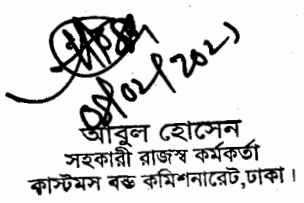 আবুল হোসেন
সহকারী রাজস্ব কর্মকর্তা
কাস্টমস বন্ড কমিশনারেট,ঢাকা।